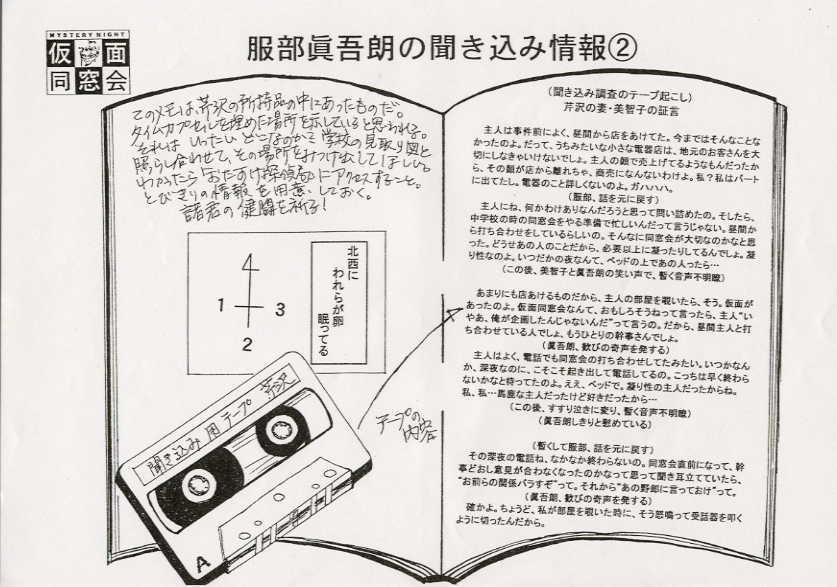 MYSTERY NIGHT
仮面
同窓会
服部眞吾朗の聞き込み情報②
このメモは、芹沢の所持品の中にあったものだ。
タイムカプセルを埋めた場所を示していると思われる。
それは いったい どこなのか? 学校の見取り図と
照らし合わせて、その場所をみつけ出してほしい。
わかったら「おたすけ探偵局」にアクセスすること。
とびきりの情報を用意しておく。
諸君の健闘を祈る!
北西に
われらが卵
眠ってる
1
3
2
聞き込み用テープ 芹沢
A
テープの
内容
(聞き込み調査のテープ起こし)
芹沢の妻・美智子の証言
主人は事件前によく、昼間から店をあけてた。今まではそんなことな
かったのよ。だって、うちみたいな小さな電器店は、地元のお客さんを大
切にしなきゃいけないでしょ。主人の顔で売上げてるようなもんだったか
ら、その顔が店から離れちゃ、商売になんないわけよ。私?私はパート
に出てたし。電器のこと詳しくないのよ。ガハハハ。
(服部、話を元に戻す)
主人にね、何かわけありなんだろうと思って問い詰めたの。そしたら、
中学校の時の同窓会をやる準備で忙しいんだって言うじゃない。昼間か
ら打ち合わせをしているらしいの。そんなに同窓会が大切なのかなと思
った。どうせあの人のことだから、必要以上に凝ったりしてるんでしょ。凝
り性なのよ。いつだかの夜なんて、ベッドの上であの人ったら…
(この後、美智子と眞吾朗の笑い声で、暫く音声不明瞭)
あまりにも店あけるものだから、主人の部屋を覗いたら、そう。仮面が
あったのよ。仮面同窓会なんて、おもしろそうねって言ったら、主人“い
やあ、俺が企画したんじゃないんだ”って言うの。だから、昼間主人と打
ち合わせている人でしょ、もうひとりの幹事さんでしょ。
(眞吾朗、歓びの奇声を発する)
主人はよく、電話でも同窓会の打ち合わせしてたみたい。いつかなん
か、深夜なのに、こそこそ起き出して電話してるの。こっちは早く終わら
ないかなと待ってたのよ。ええ、ベッドで。凝り性の主人だったからね。
私、私…馬鹿な主人だったけど好きだったから…
(この後、すすり泣きに変り、暫く音声不明瞭)
(眞吾朗しきりと慰めている)
(暫くして服部、話を元に戻す)
その深夜の電話ね、なかなか終わらないの。同窓会直前になって、幹
事どおし意見が合わなくなったのかなって思って聞き耳立てていたら、
“お前らの関係バラすぞ”って。それから“あの野郎に言っておけ”って。
(眞吾朗、歓びの奇声を発する)
確かよ。ちょうど、私が部屋を覗いた時に、そう怒鳴って受話器を叩く
ように切ったんだから。